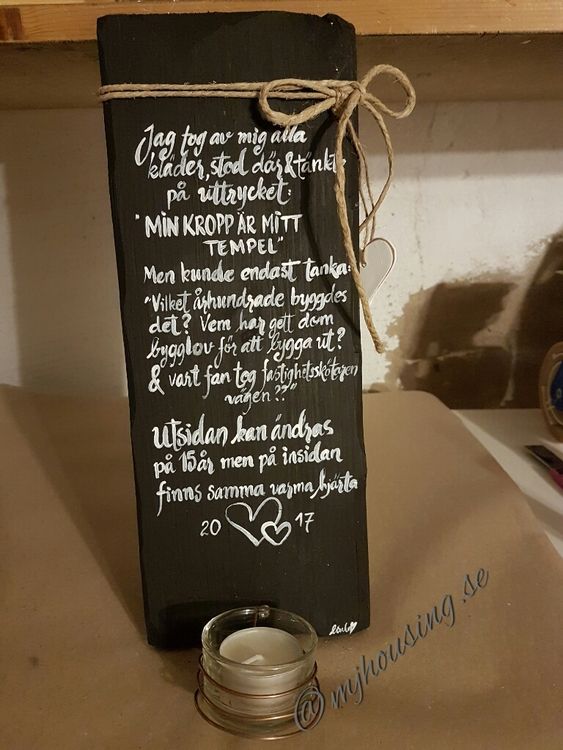 Jag tog av mig alla
kläder, stod där & tänkte
på uttrycket:
"MIN KROPP ÄR MITT
TEMPEL"
Men kunde endast tänka:
"Vilket århundrade byggdes
det? Vem har gett dom
bygglov för att bygga ut?
& vart fan tog fastighetsskötaren
vägen??"
Utsidan kan ändras
på 15 år men på insidan
finns samma varma hjärta
20 17
@ mjhousing.se